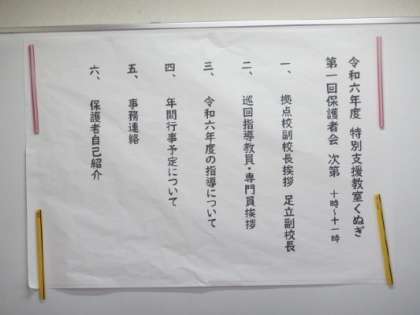 令和六年度 特別支援教室くぬぎ
第一回保護者会 次第 十時~十一時
一、拠点校副校長挨拶 足立副校長
二、巡回指導教員・専門員挨拶
三、令和六年度の指導について
四、年間行事予定について
五、事務連絡
六、保護者自己紹介